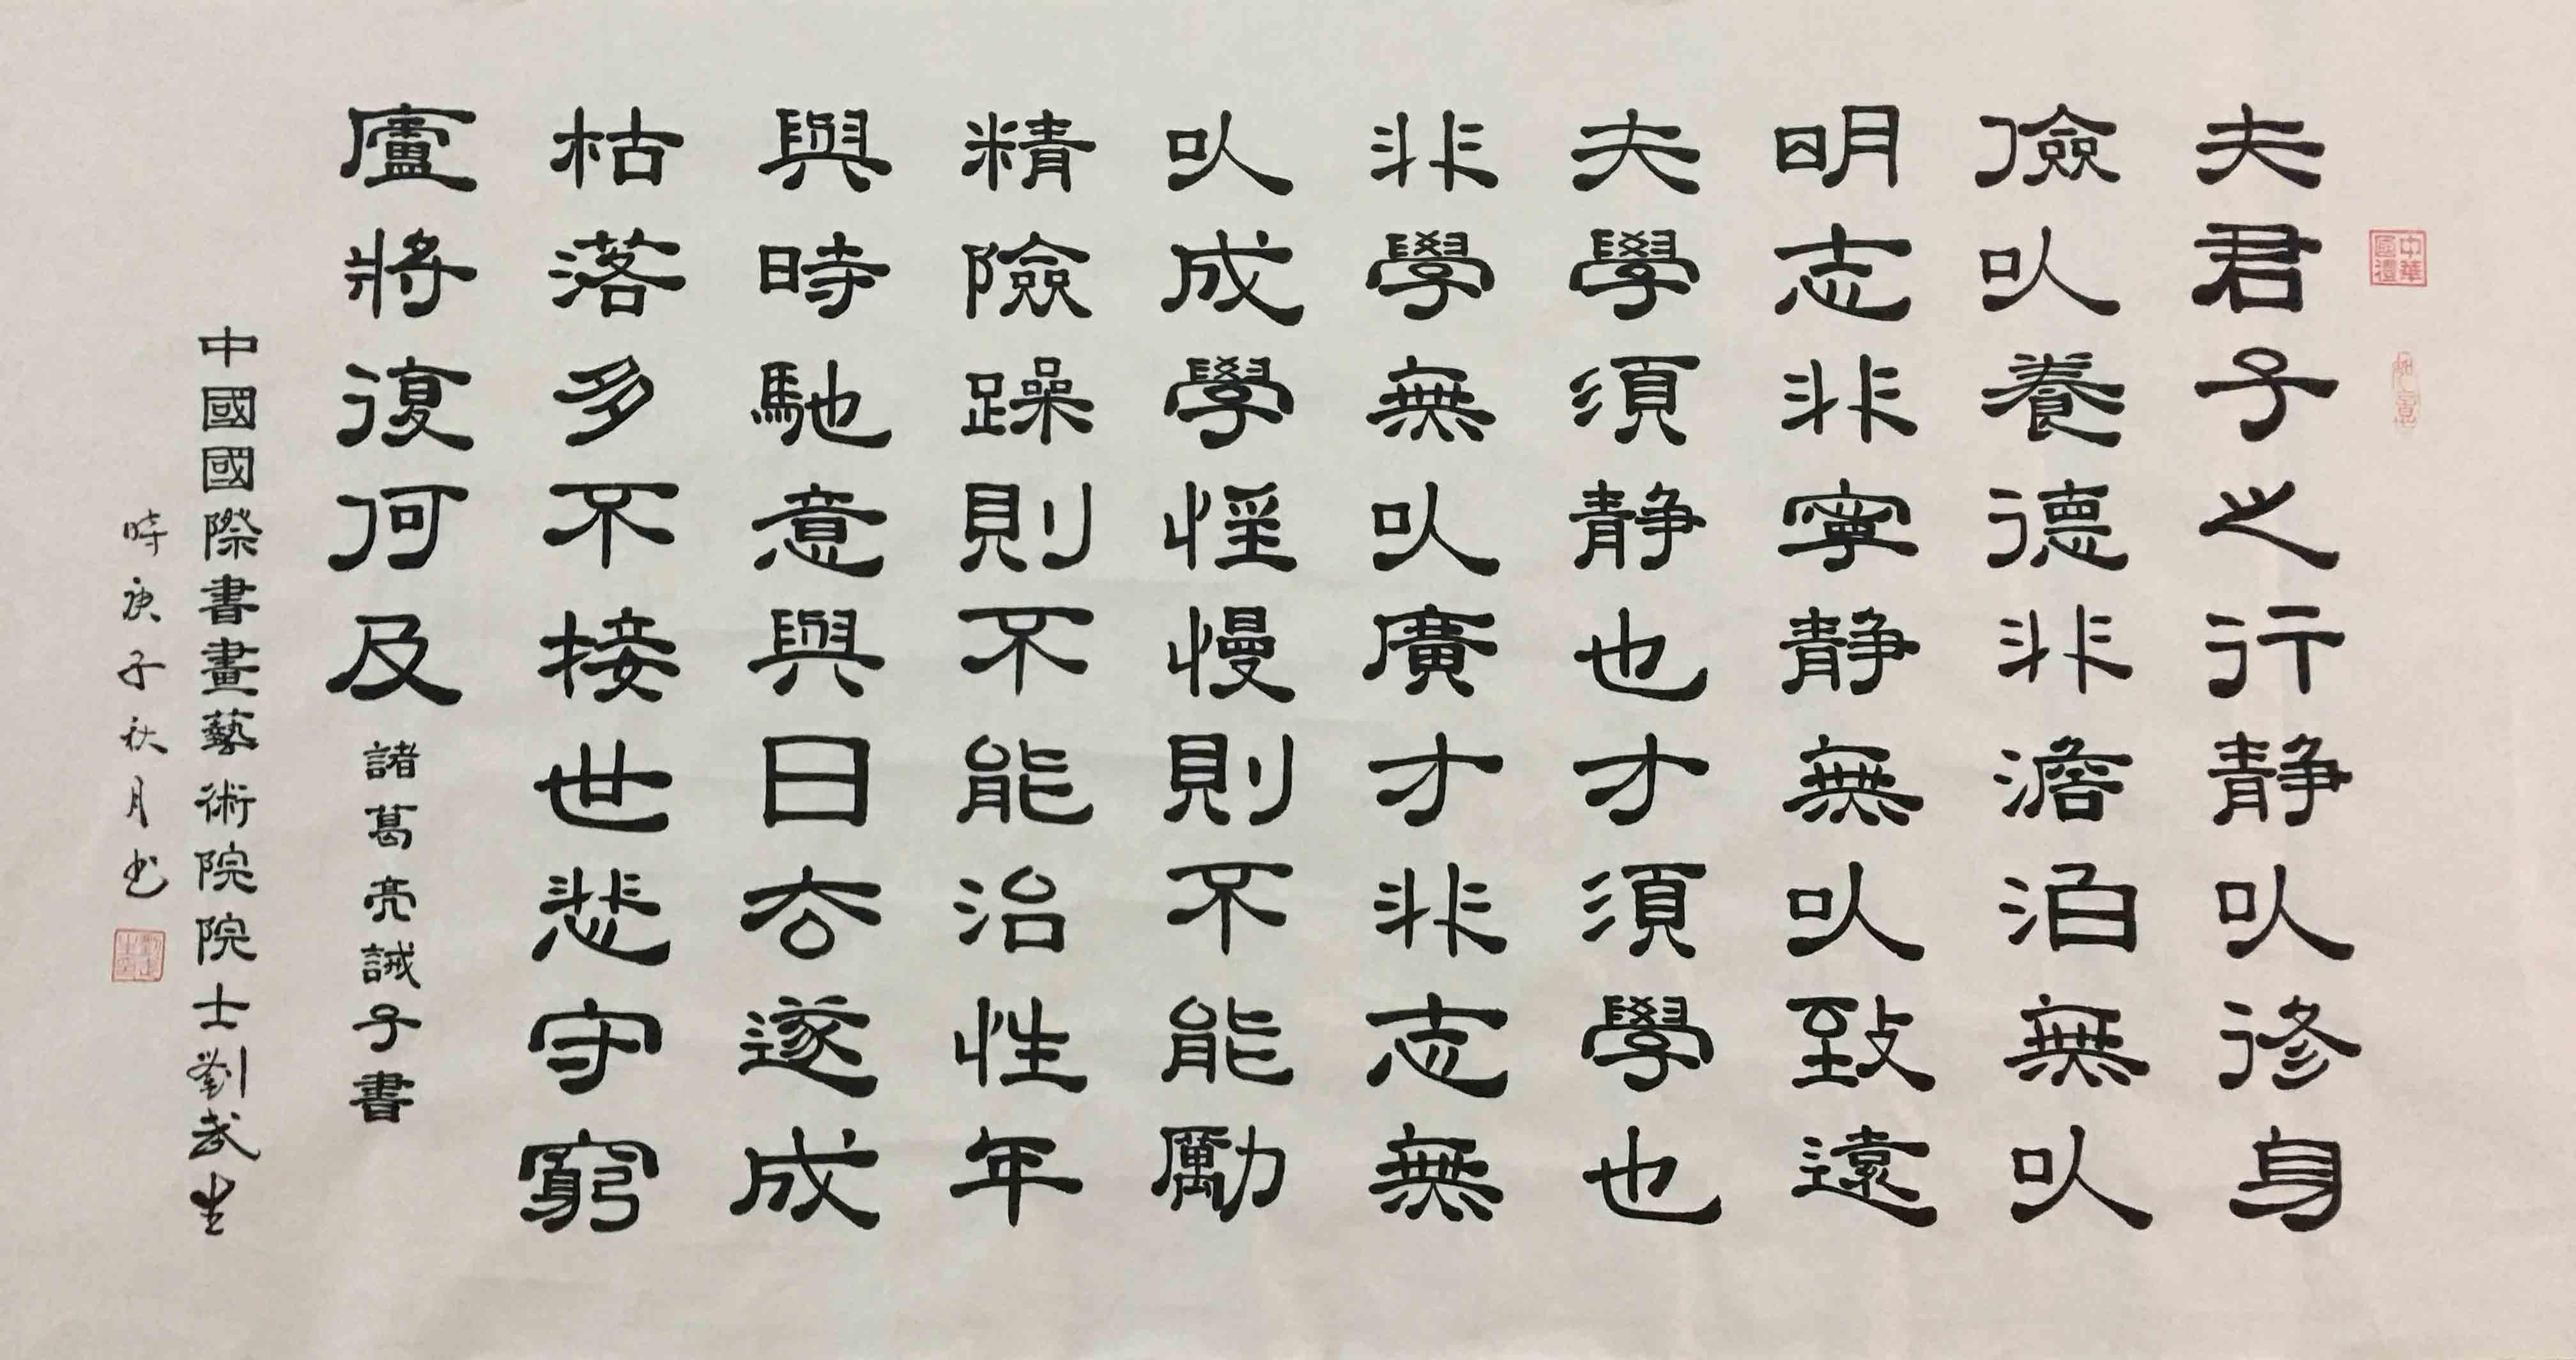 夫君子之行静以修身
儉以養德非澹泊無以
明志非寧静無以致遠
夫學須静也才須學也
非學無以廣才非志無
以成學慆慢則不能勵
精險躁則不能治性年
與時馳意與日去遂成
枯落多不接世悲守窮
廬將復何及
諸葛亮誡子書
中國國際書畫藝術院院士劉武生
時庚子秋月书
中華國禮